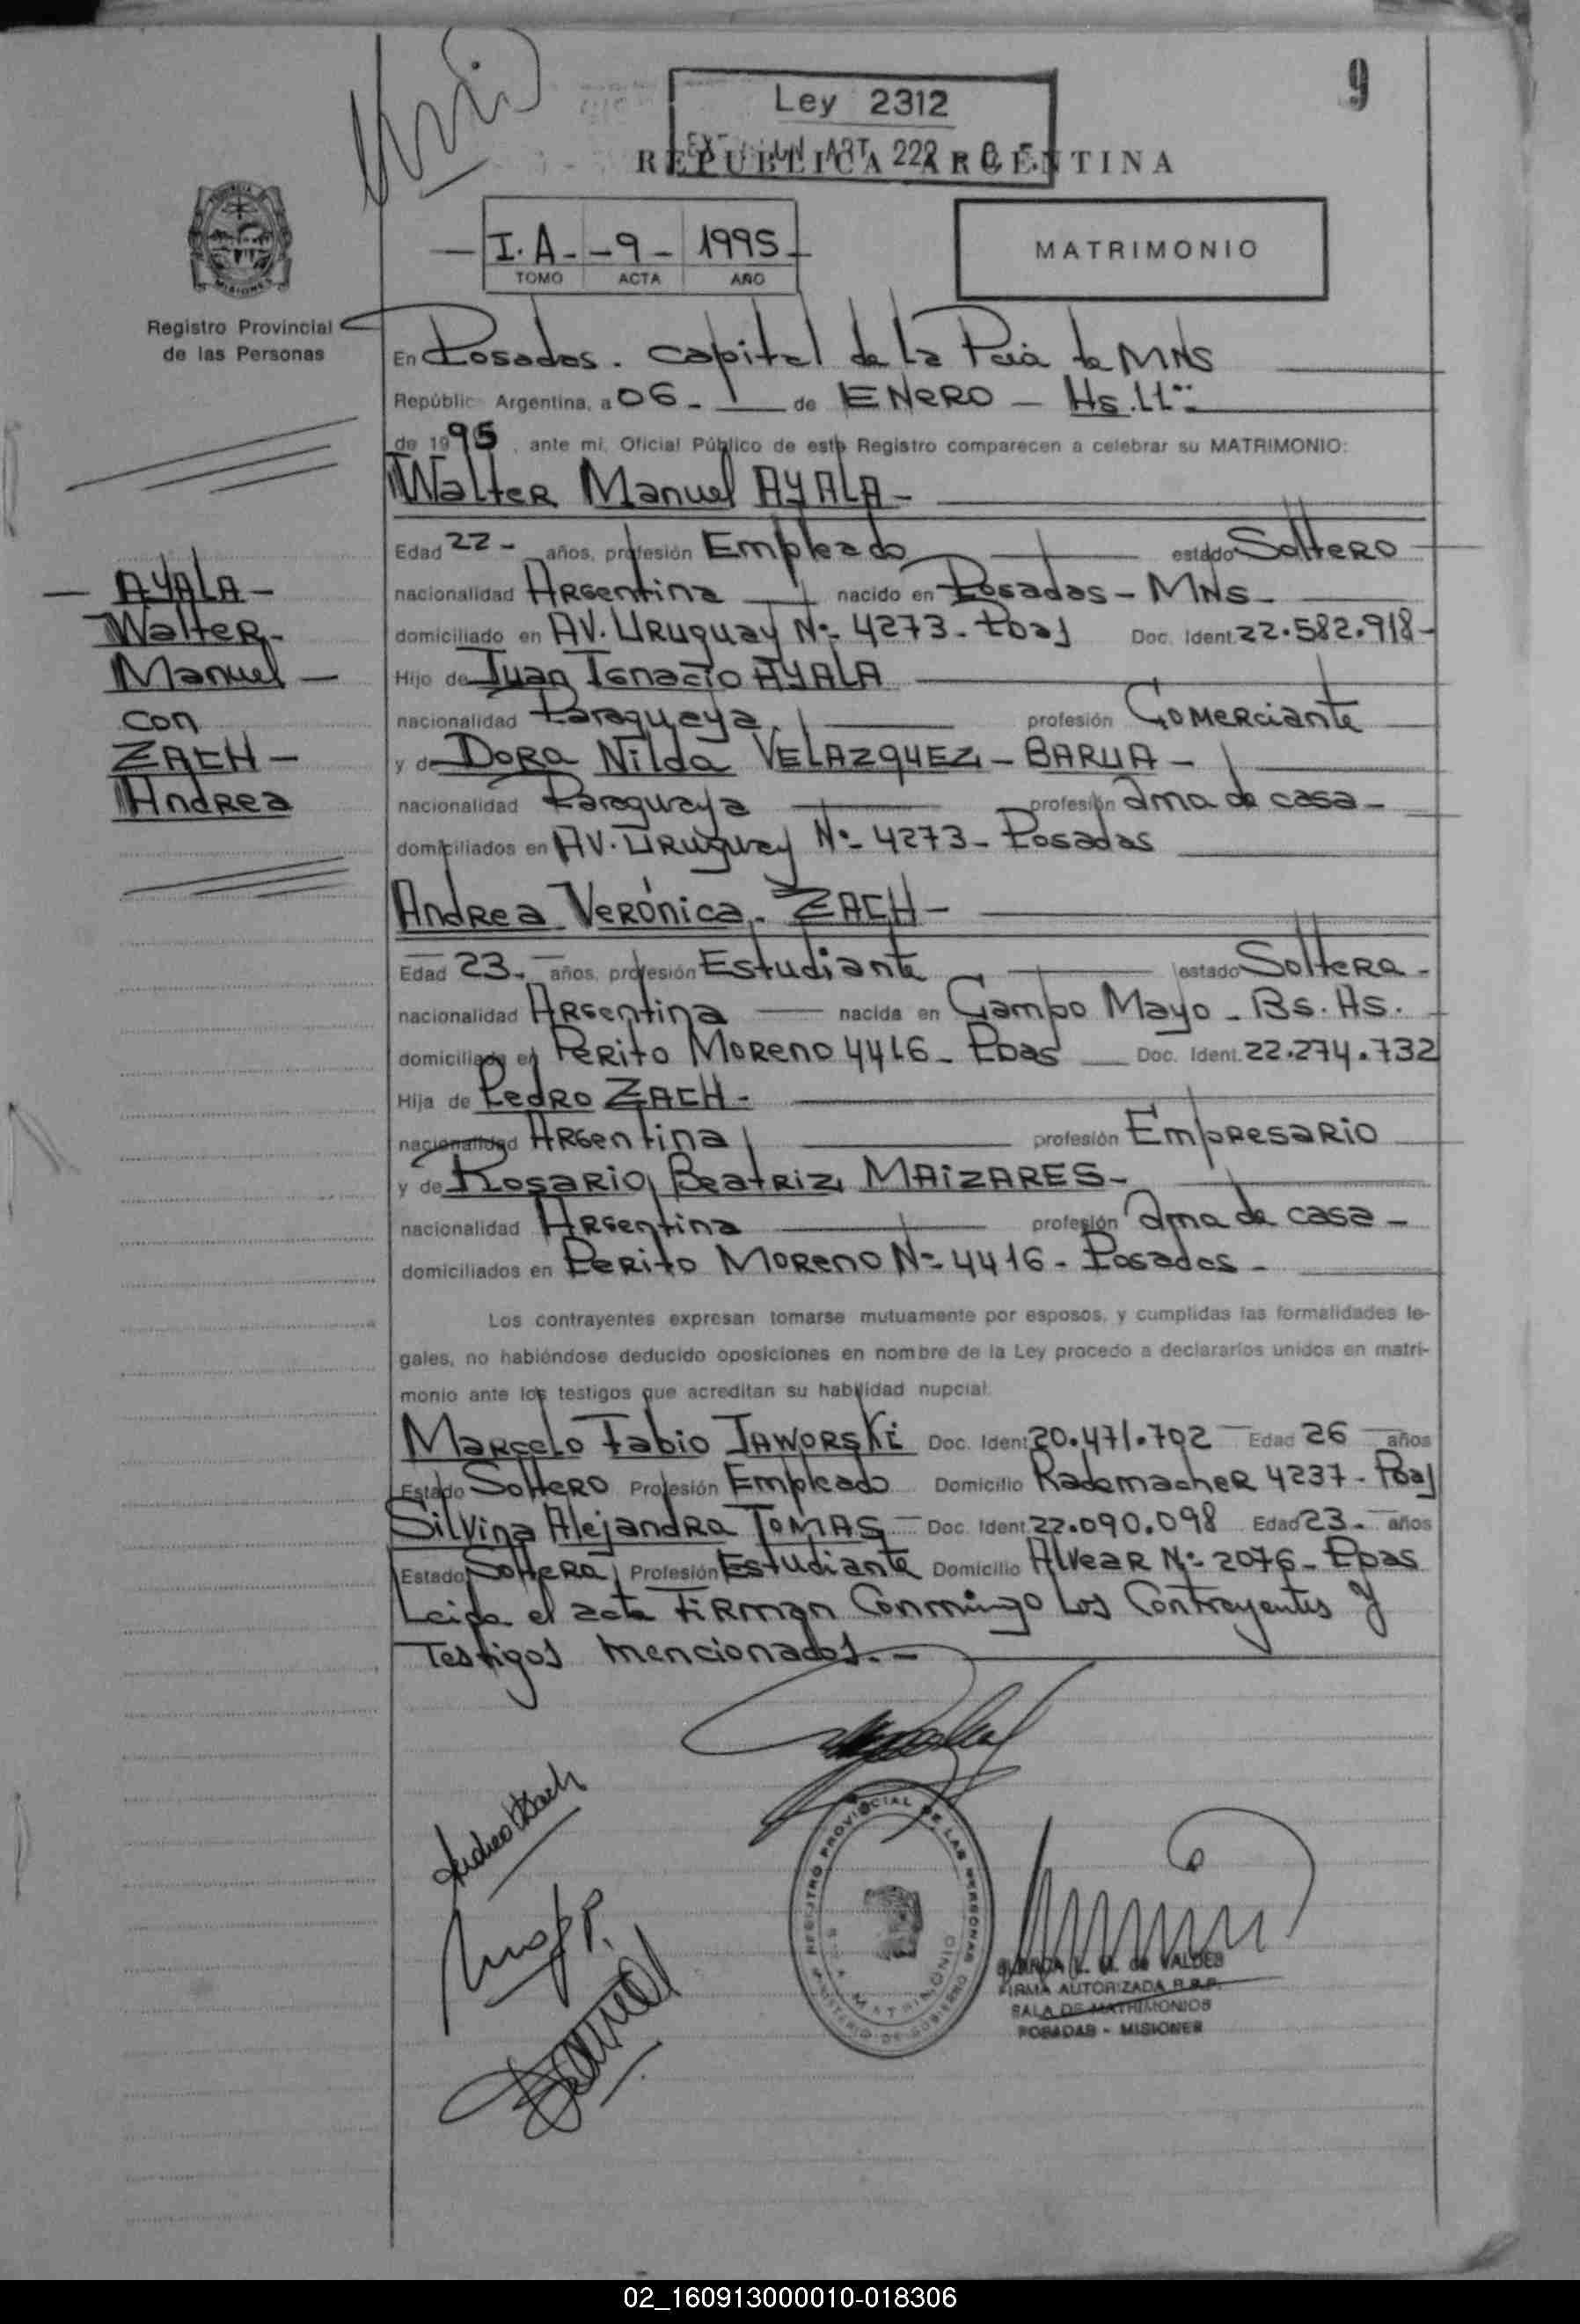 9
Ley 2312
ART. 222
REPUBLICA ARGENTINA
I.A- -9- 1995-
TOMO ACTA AÑO
MATRIMONIO
PROVINCIA
MISIONES
Registro Provincial
de las Personas
En Posadas. Capital de La Pcia de MNS
República Argentina, a 06- de ENERO - Hs.11
de 1995, ante mi, Oficial Público de este Registro comparecen a celebrar su MATRIMONIO:
Walter Manuel AYALA-
Edad 22- años, profesión Empleado estado Soltero
nacionalidad Argentina nacido en Posadas - MNS-
domiciliado en AV. Uruguay Nº 4273- Pdas Doc. Ident. 22.582.918-
Hijo de Juan Ignacio AYALA
nacionalidad Paraguaya profesión Comerciante
y de Dora Nilda VELAZQUEZ - BARUA -
nacionalidad Paraguaya profesión ama de casa-
domiciliados en AV. Uruguay Nº 4273- Posadas
- AYALA -
Walter-
Manuel -
con
ZACH -
Andrea
Andrea Verónica. ZACH-
Edad 23- años, profesión Estudiante estado Soltera-
nacionalidad Argentina nacida en Campo Mayo - Bs. As.
domiciliada en Perito Moreno 4416- Pdas Doc. Ident. 22.274.732
Hija de Pedro ZACH-
nacionalidad Argentina profesión Empresario
y de Rosario Beatriz MAIZARES-
nacionalidad Argentina profesión ama de casa -
domiciliados en Perito Moreno Nº 4416- Posadas-
Los contrayentes expresan tomarse mutuamente por esposos, y cumplidas las formalidades le-
gales, no habiéndose deducido oposiciones en nombre de la Ley procedo a declararlos unidos en matri-
monio ante los testigos que acreditan su habilidad nupcial.
Marcelo Fabio JAWORSKI Doc. Ident. 20.471.702 Edad 26 años
Estado Soltero Profesión Empleado Domicilio Rademacher 4237- Pdas
Silvina Alejandra TOMAS Doc. Ident. 22.090.098 Edad 23- años
Estado Soltera Profesión Estudiante Domicilio Alvear Nº 2076- Pdas
Leida el acta Firman Conmingo Los Contrayentes y
Testigos mencionados.-
Andrea Zach
REGISTRO PROVINCIAL DE LAS PERSONAS
SALA MATRIMONIO
MINISTERIO DE GOBIERNO
L. M. de VALDES
FIRMA AUTORIZADA R.P.P.
SALA DE MATRIMONIOS
POSADAS - MISIONES
02_160913000010-018306